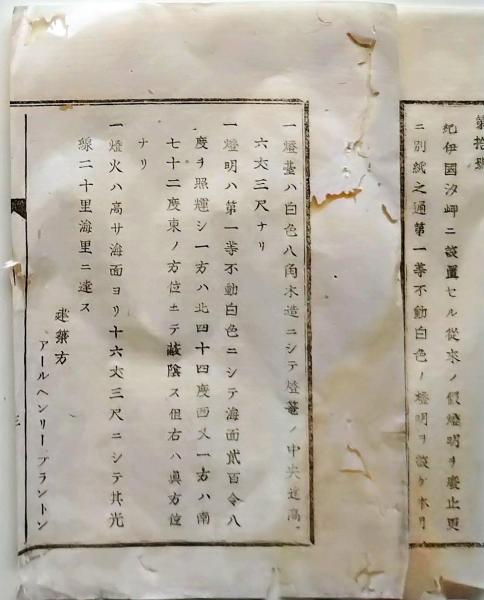 第拾
紀伊國汐岬ニ設置セル從來ノ假燈明ヲ廢止更
ニ別紙之通第一等不動白色ノ燈明ヲ設ケ本月
一燈臺ハ白色八角木造ニシテ燈臺ノ中央迄高
六丈三尺ナリ
一燈明ハ第一等不動白色ニシテ海面貳百令八
度ヲ照輝シ一方ハ北四十四度西又一方ハ南
七十二度東ノ方位ニテ蔽陰ス但右ハ眞方位
ナリ
一燈火ハ高サ海面ヨリ十六丈三尺ニシテ其光
線二十里海里ニ達ス
建築方
アールヘンリーブラントン
三